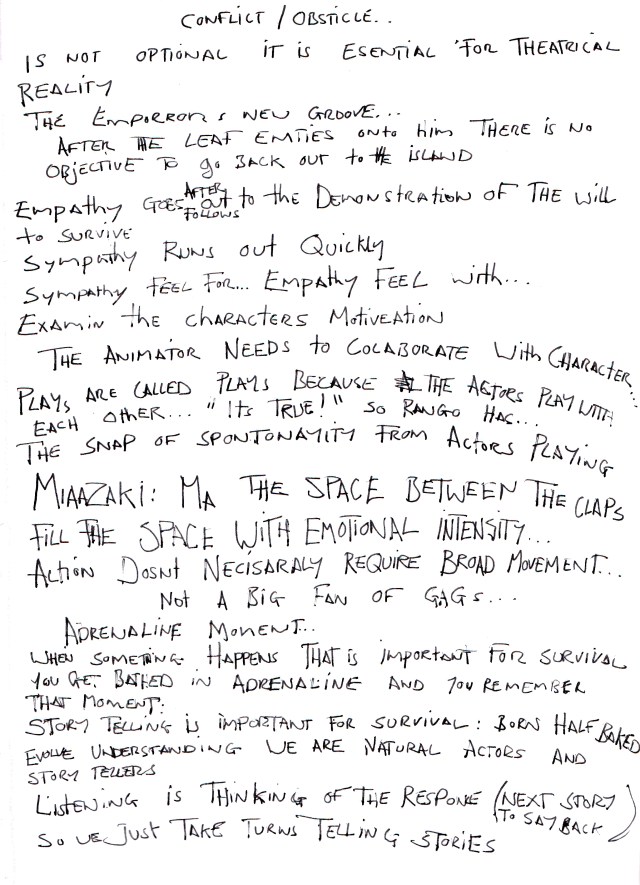 CONFLICT / OBSTICLE..
IS NOT OPTIONAL IT IS ESENTIAL FOR THEATRICAL
REALITY
THE EMPORROR'S NEW GROOVE...
AFTER THE LEAF EMTIES ONTO HIM THERE IS NO
OBJECTIVE TO GO BACK OUT TO THE ISLAND
EMPATHY GOES AFTER OUT TO THE DEMONSTRATION OF THE WILL
FOLLOWS
TO SURVIVE
SYMPATHY RUNS OUT QUICKLY
SYMPATHY FEEL FOR... EMPATHY FEEL WITH...
EXAMIN THE CHARACTERS MOTIVEATION
THE ANIMATOR NEEDS TO COLABORATE WITH CHARACTER...
PLAYS ARE CALLED PLAYS BECAUSE THE ACTORS PLAY WITH
EACH OTHER... "ITS TRUE!" SO RANGO HAS...
THE SNAP OF SPONTONAYITY FROM ACTORS PLAYING
MIAAZAKI: MA THE SPACE BETWEEN THE CLAPS
FILL THE SPACE WITH EMOTIONAL INTENSITY...
ACTION DOSNT NECISARALY REQUIRE BROAD MOVEMENT...
NOT A BIG FAN OF GAGS...
ADRENALINE MOMENT...
WHEN SOMETING HAPPENS THAT IS IMPORTANT FOR SURVIVAL
YOU GET BATHED IN ADRENALINE AND YOU REMEMBER
THAT MOMENT.
STORY TELLING IS IMPORTANT FOR SURVIVAL: BORN HALF BAKED
EVOLVE UNDERSTANDING WE ARE NATURAL ACTORS AND
STORY TELLERS
LISTENING IS THINKING OF THE RESPONE (NEXT STORY
TO SAY BACK)
SO WE JUST TAKE TURNS TELLING STORIES